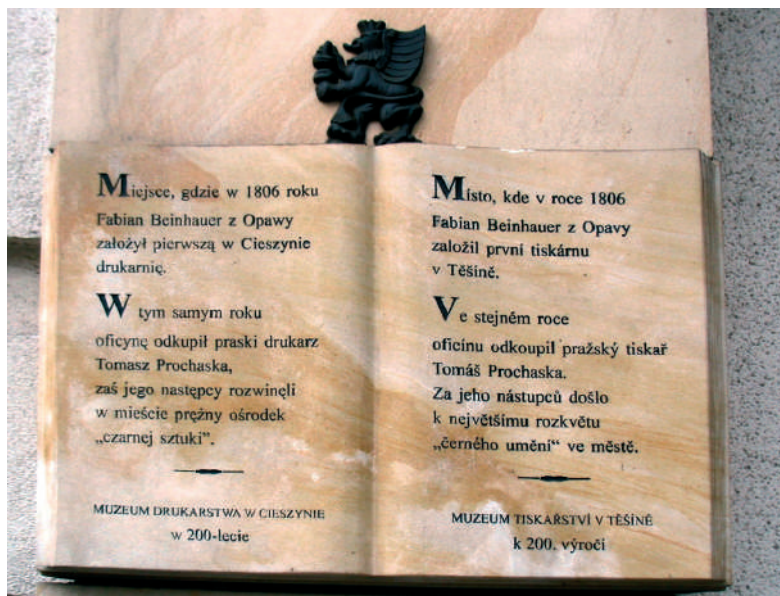 Miejsce, gdzie w 1806 roku
Fabian Beinhauer z Opawy
założył pierwszą w Cieszynie
drukarnię.
W tym samym roku
oficynę odkupił praski drukarz
Tomasz Prochaska,
zaś jego następcy rozwinęli
w mieście prężny ośrodek
„czarnej sztuki”.
MUZEUM DRUKARSTWA W CIESZYNIE
w 200-lecie
Místo, kde v roce 1806
Fabian Beinhauer z Opavy
založil první tiskárnu
v Těšíně.
Ve stejném roce
oficínu odkoupil pražský tiskař
Tomáš Prochaska.
Za jeho nástupců došlo
k největšímu rozkvětu
„černého umění“ ve městě.
MUZEUM TISKAŘSTVÍ V TĚŠÍNĚ
k 200. výročí